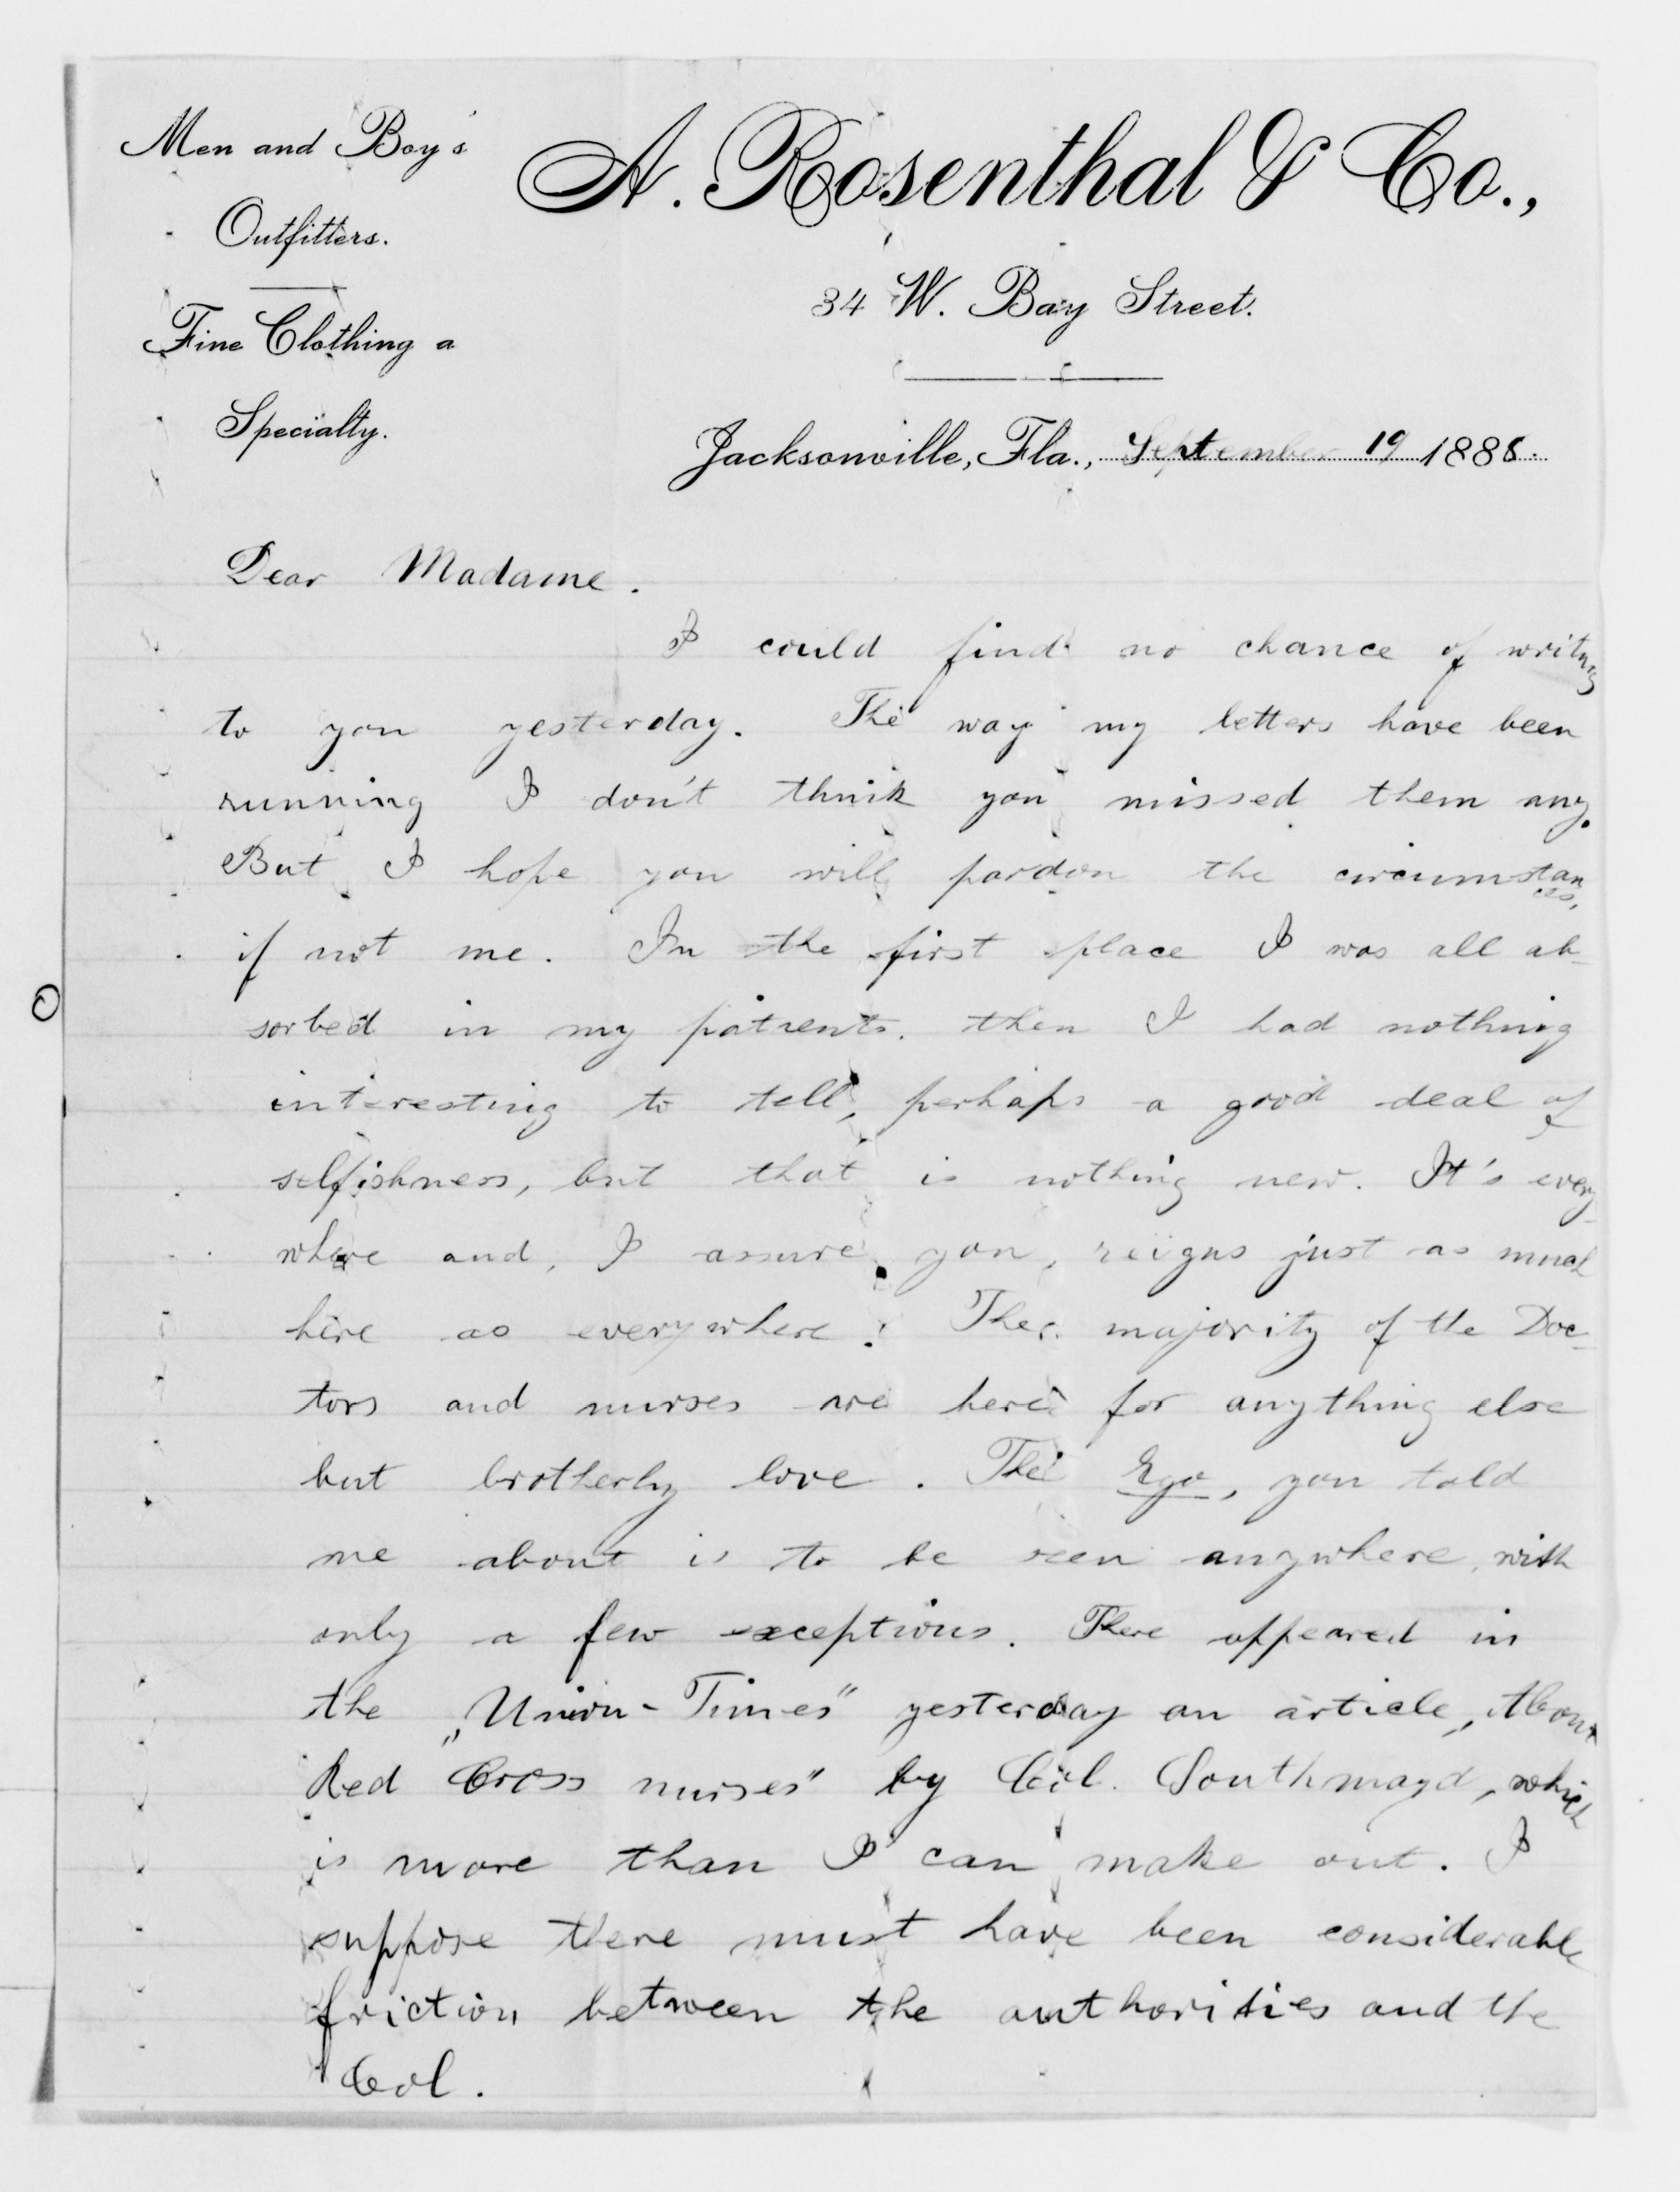 Men and Boy's
Outfitters.
Fine Clothing a
Specialty.
A. Rosenthal & Co.,
34 W. Bay Street.
Jacksonville, Fla., September 19 1888.
Dear Madame.
I could find no chance of writing
to you yesterday. The way my letters have been
running I don't think you missed them any.
But I hope you will pardon the circumstances,
if not me. In the first place I was all ab-
sorbed in my patients. then I had nothing
interesting to tell, perhaps a good deal of
selfishness, but that is nothing new. It's every-
where and, I assure you, reigns just as much
here as everywhere! The majority of the Doc-
tors and nurses are here for anything else
but brotherly love. The Ego, you told
me about is to be seen anywhere, with
only a few exceptions. There appeared in
the „Union-Times" yesterday an article, „About
Red Cross nurses" by Col. Southmayd, which
is more than I can make out. I
suppose there must have been considerable
friction between the authorities and the
Col.